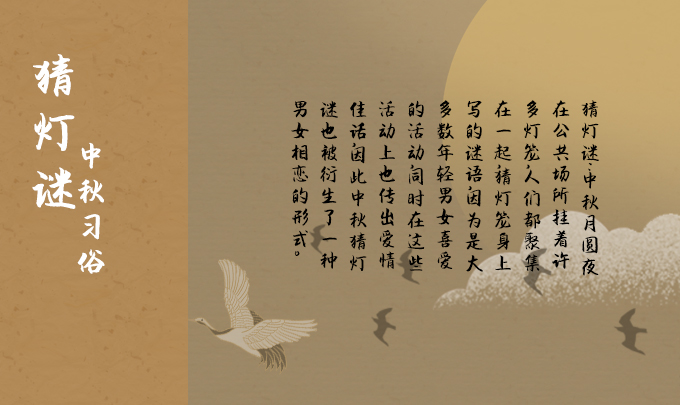 猜灯谜
中秋习俗
猜灯谜，中秋月圆夜
在公共场所挂着许
多灯笼，人们都聚集
在一起，猜灯笼身上
写的谜语，因为是大
多数年轻男女喜爱
的活动，同时在这些
活动上也传出爱情
佳话，因此中秋猜灯
谜也被衍生了一种
男女相恋的形式。